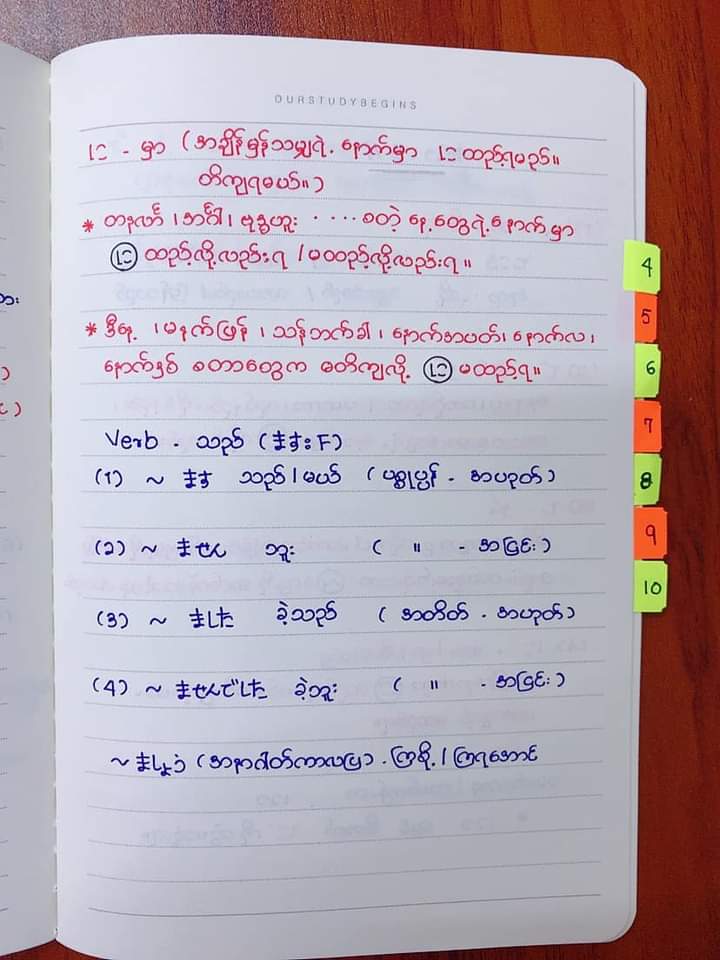 OURSTUDYBEGINS
に - မှာ (အချိန်မှန်သမျှရဲ့ နောက်မှာ に ထည့်ရမည်။
တိကျရမယ်။)
* တနင်္လာ၊ အင်္ဂါ၊ ဗုဒ္ဓဟူး ····· စတဲ့ နေ့တွေရဲ့ နောက်မှာ
に ထည့်လို့လည်းရ / မထည့်လို့လည်းရ။
* ဒီနေ့ ၊ မနက်ဖြန် ၊ သန်ဘက်ခါ ၊ နောက်အပတ်၊ နောက်လ ၊
နောက်နှစ် စတာတွေက မတိကျလို့ に မထည့်ရ။
Verb - သည် (ます: F)
(1) ~ ます သည် / မယ် (ပစ္စုပ္ပန် - အဟုတ်)
(2) ~ ません ဘူး ( " - အငြင်း)
(3) ~ ました ခဲ့သည် (အတိတ် - အဟုတ်)
(4) ~ ませんでした ခဲ့ဘူး ( " - အငြင်း)
~ ましょう (အနာဂါတ်ကာလပြ) - ကြစို့ / ကြရအောင်
4
5
6
7
8
9
10